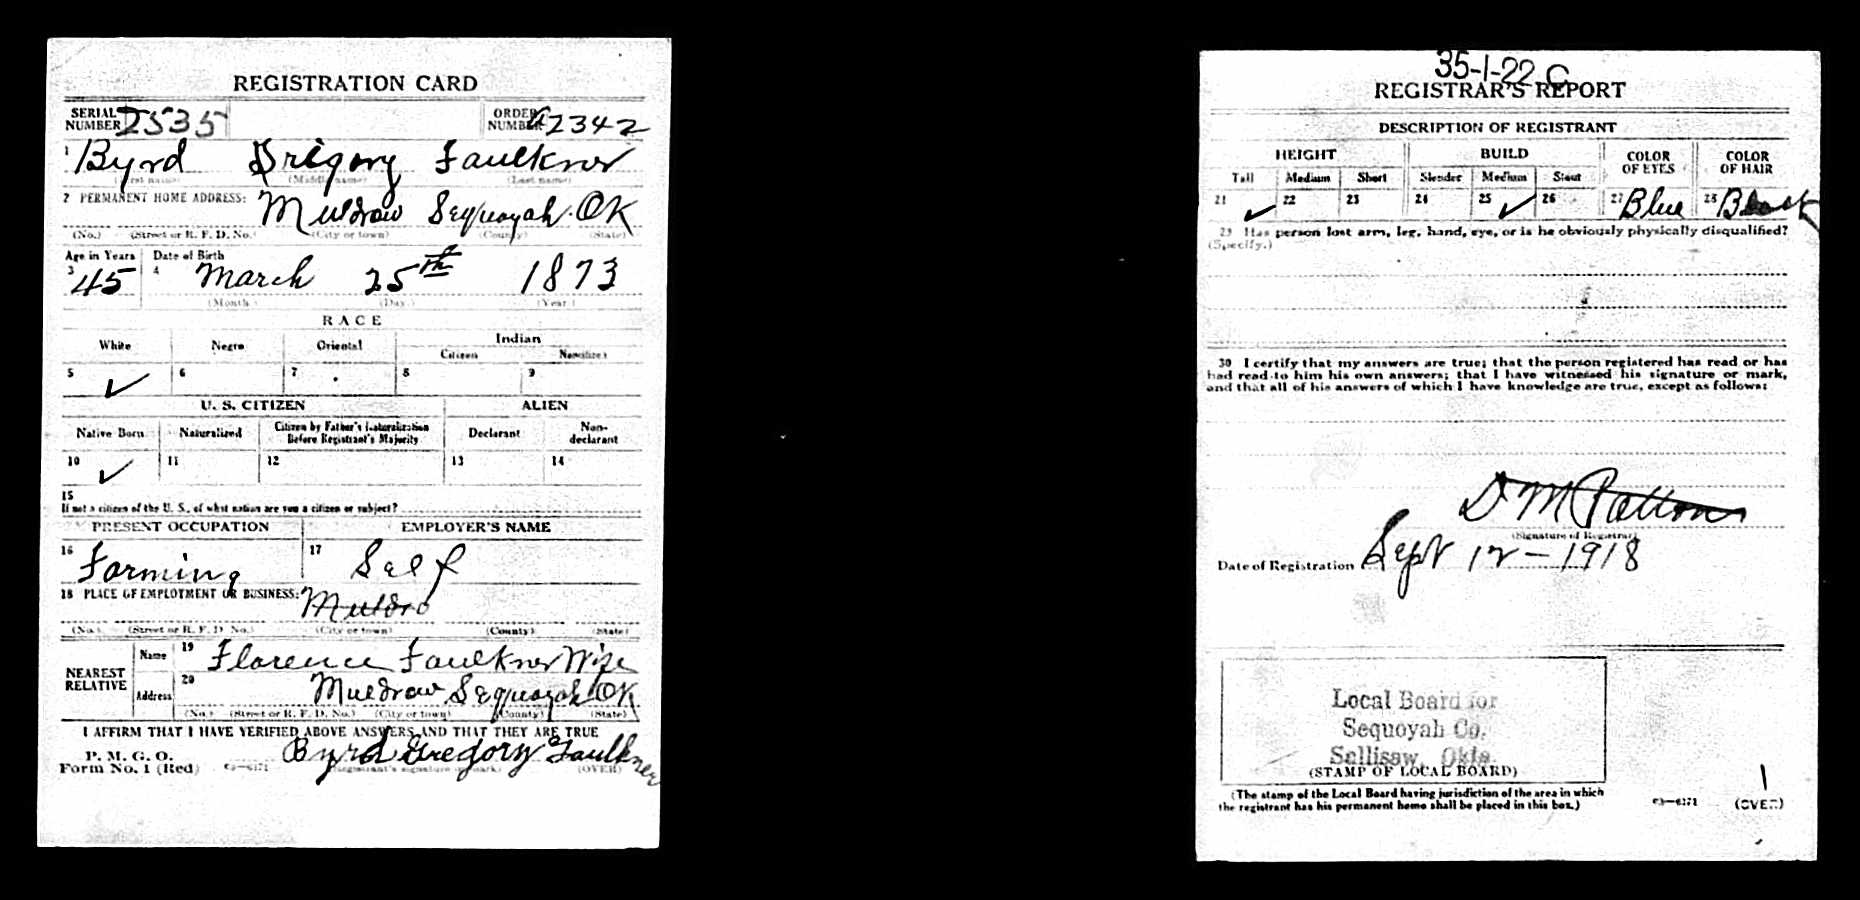 REGISTRATION CARD
SERIAL NUMBER 2535
ORDER NUMBER 2342
1 Byrd Grigory Faulkner
(First name) (Middle name) (Last name)
2 PERMANENT HOME ADDRESS: Muldrow Sequoyah OK
(No.) (Street or R. F. D. No.) (City or town) (County) (State)
Age in Years Date of Birth
3 45 4 March 25th 1873
(Month.) (Day.) (Year.)
RACE
White Negro Oriental Indian
Citizen Noncitizen
5 ✓ 6 7 8 9
U. S. CITIZEN ALIEN
Native Born Naturalized Citizen by Father's Naturalization Before Registrant's Majority Declarant Non-declarant
10 ✓ 11 12 13 14
15
If not a citizen of the U. S., of what nation are you a citizen or subject?
PRESENT OCCUPATION EMPLOYER'S NAME
16 Farming 17 Self
18 PLACE OF EMPLOYMENT OR BUSINESS: Muldro
(No.) (Street or R. F. D. No.) (City or town) (County) (State)
NEAREST RELATIVE
Name 19 Florence Faulkner Wife
Address 20 Muldrow Sequoyah OK
(No.) (Street or R. F. D. No.) (City or town) (County) (State)
I AFFIRM THAT I HAVE VERIFIED ABOVE ANSWERS AND THAT THEY ARE TRUE
P. M. G. O.
Form No. 1 (Red) Byrd Gregory Faulkner
(Registrant's signature or mark) (OVER)
35-1-22 C
REGISTRAR'S REPORT
DESCRIPTION OF REGISTRANT
HEIGHT BUILD COLOR OF EYES COLOR OF HAIR
Tall Medium Short Slender Medium Stout
21 ✓ 22 23 24 25 ✓ 26 27 Blue 28 Black
29 Has person lost arm, leg, hand, eye, or is he obviously physically disqualified?
(Specify.)
30 I certify that my answers are true; that the person registered has read or has
had read to him his own answers; that I have witnessed his signature or mark,
and that all of his answers of which I have knowledge are true, except as follows:
D M Patton
(Signature of Registrar)
Date of Registration Sept 12 - 1918
Local Board for
Sequoyah Co.
Sallisaw, Okla.
(STAMP OF LOCAL BOARD)
(The stamp of the Local Board having jurisdiction of the area in which
the registrant has his permanent home shall be placed in this box.)
03-6171 (OVER)